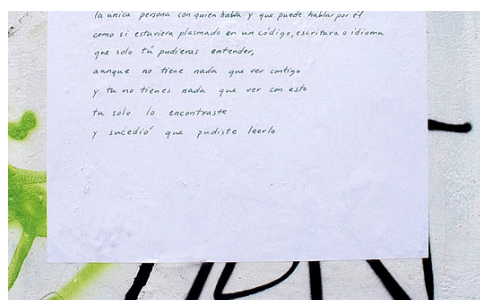 la unica persona con quien habla y que puede hablar por él
como si estuviera plasmado en un código, escritura o idioma
que solo tú pudieras entender,
aunque no tiene nada que ver contigo
y tu no tienes nada que ver con esto
tu solo lo encontraste
y sucedió que pudiste leerlo